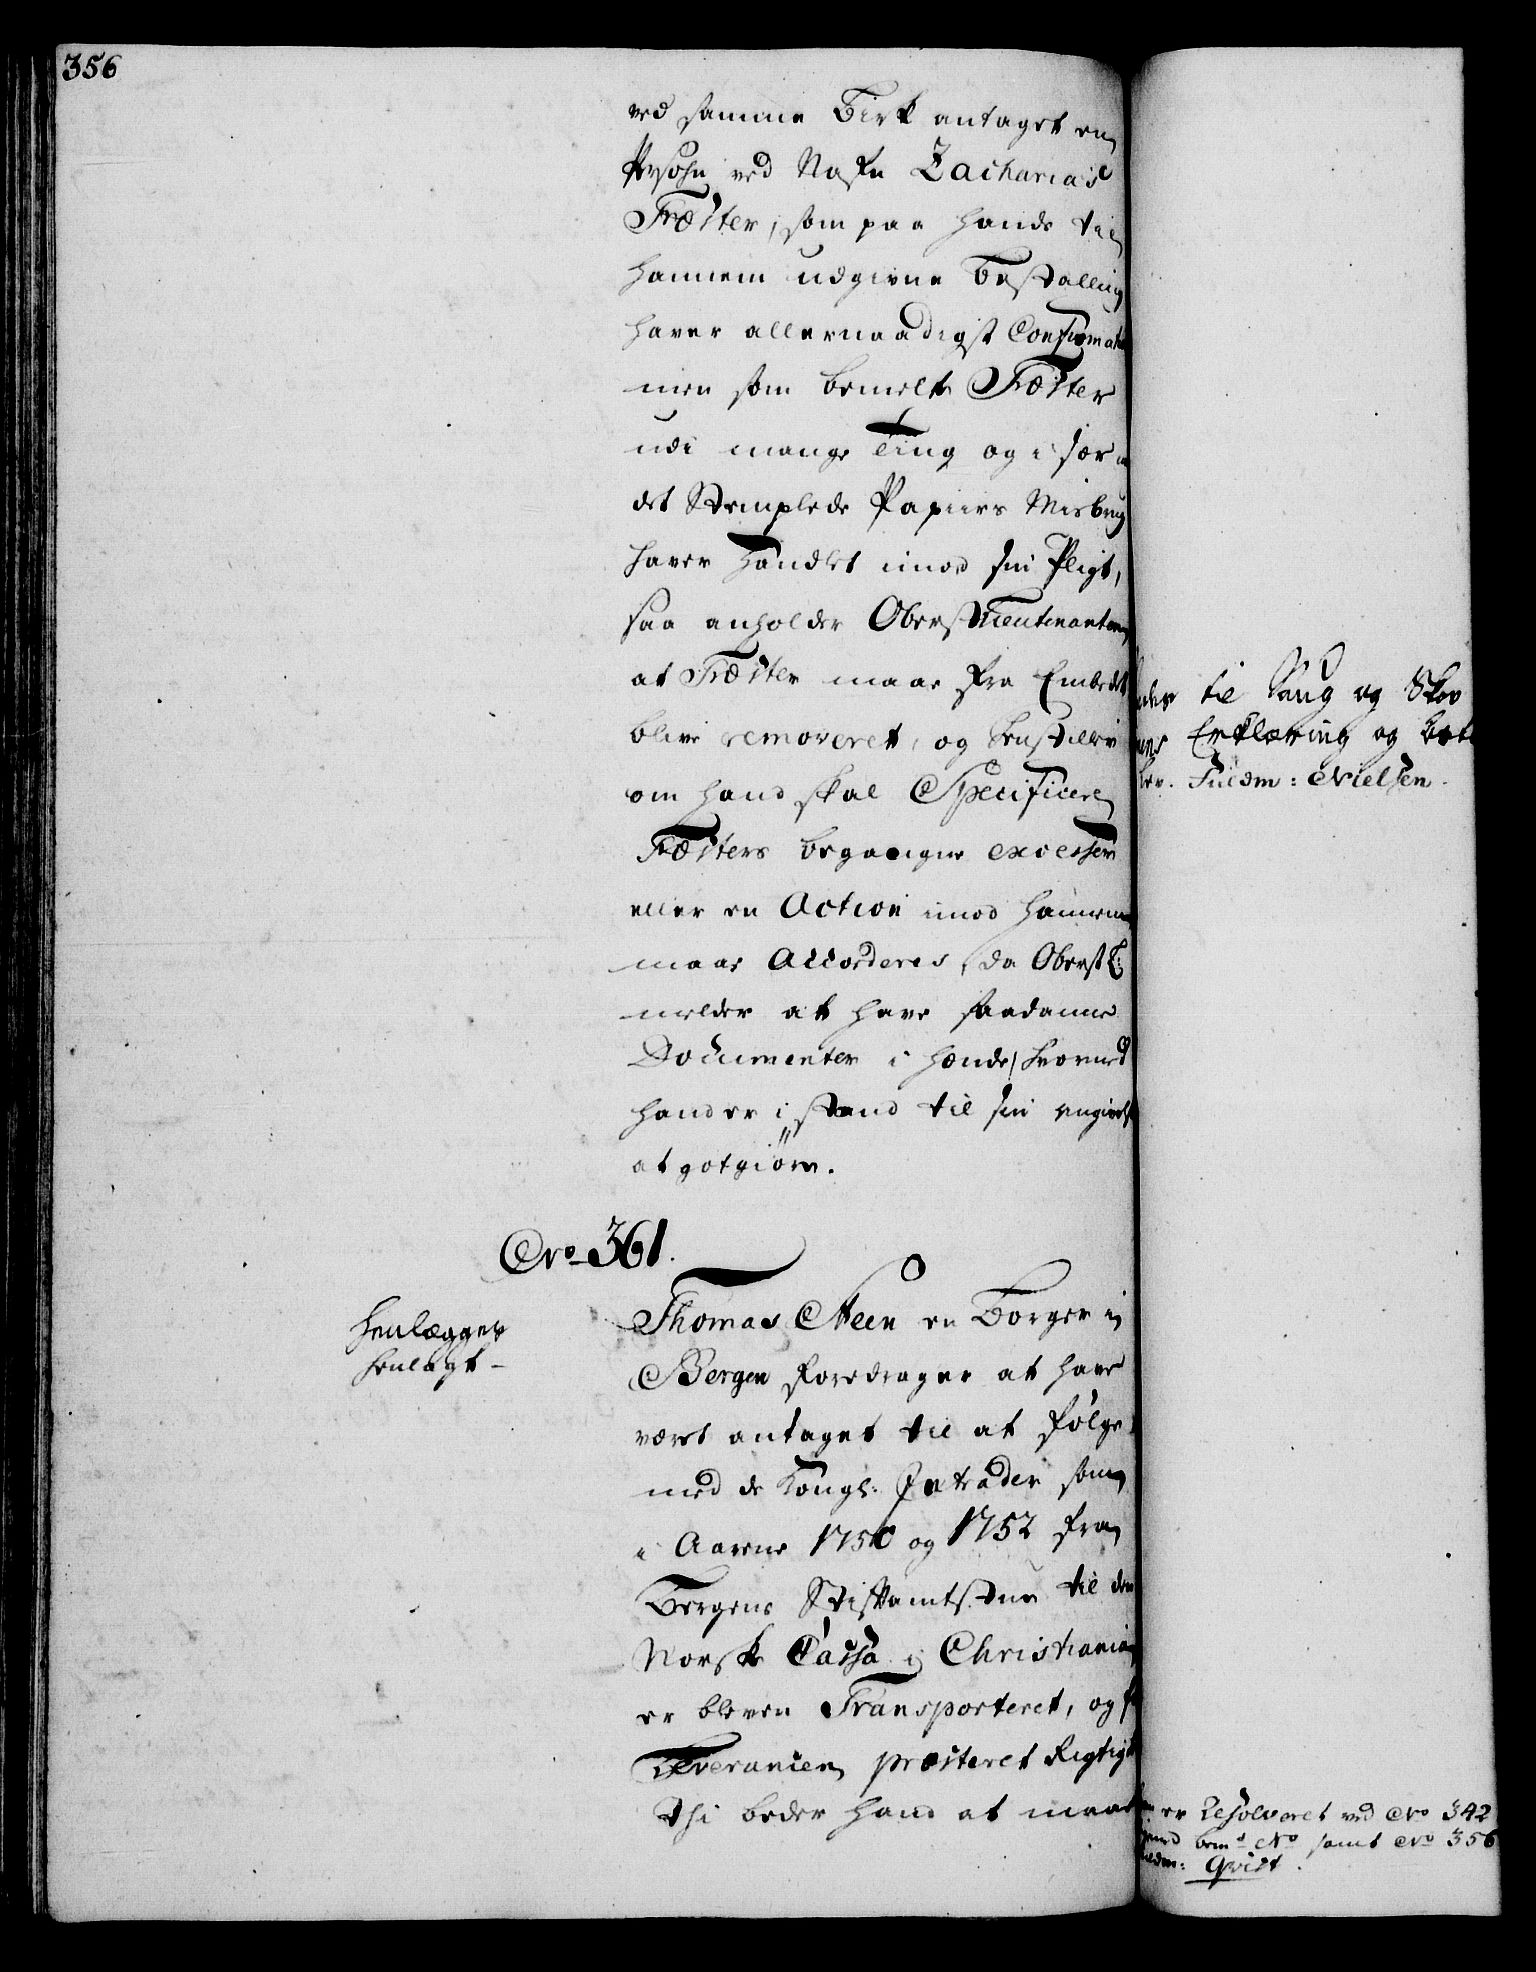 356
ved samme Birk antaget en
Persohn ved Nafn Zacharias
Fræster, som paa hands til
hannem udgivne Bestalling
haver allernaadigst Confirmati
men som bemelte Fræster
udi mange Ting og i sær
det Stemplede Papiirs Misbrug
haver handlet imod sin Pligt,
saa anholder Oberstlieutenanten
at Fræster maae fra Embedet
blive removeret, og henstiller
om hand skal Specificere
Fræsters begangne excesser
eller en Action imod hannem
maae Accorderes, da Oberst L:
melder at have saadanne
Documenter i hænde, hvormed
hand er i stand til sin angivelse
at gotgiøre.
No 361.
Henlægges
henlagt
Thomas Steen en Borger i
Bergen foredrager at have
været antaget til at følge
med de Kongl: Intrader som
i Aarene 1750 og 1752 fra
Bergens Stiftamtstue til den
Norske Cassa i Christiania
er bleven Transporteret, og
Leverancen præsteret Rigtig
thi beder hand at maae
til Saug og Skov
Erklæring og bet
Fuldm: Nielsen.
er Resolveret ved No 342
bemte No samt No 356
Qvist.